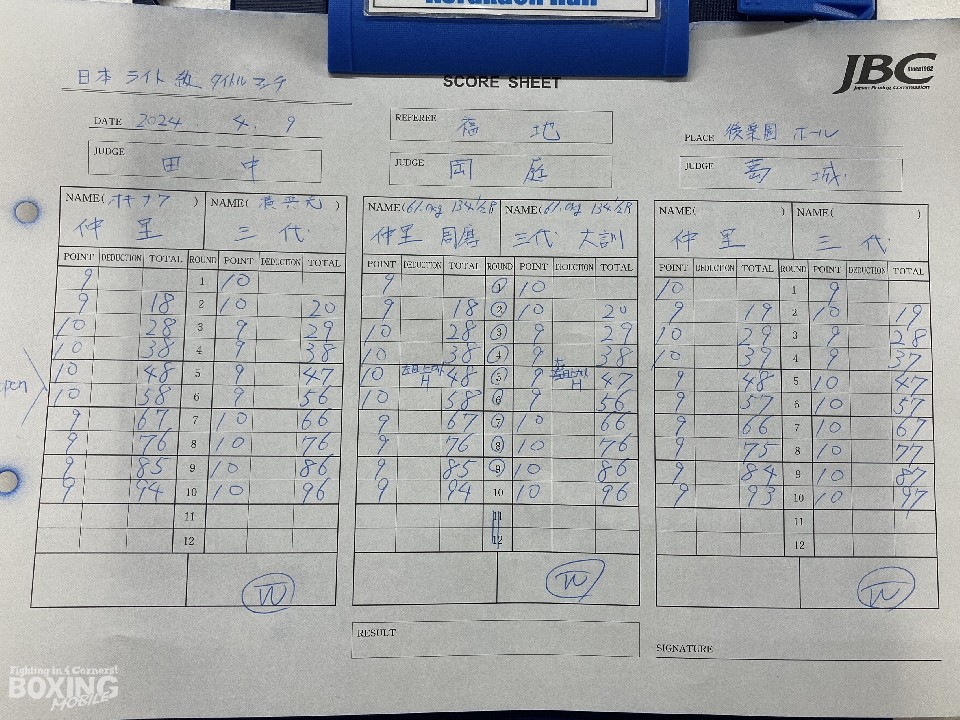 Korakuen Hall
日本 ライト級 タイトルマッチ
SCORE SHEET
JBC
Since1952
Japan Boxing Commission
DATE 2024. 4. 9
REFEREE 福地
PLACE 後楽園ホール
JUDGE 田中
JUDGE 岡庭
JUDGE 葛城
NAME(オキナワ) NAME( )
仲里 三代
NAME(61.0kg 134 1/2R NAME(61.0kg 134 1/2R
仲里 周磨 三代 大訓
NAME( ) NAME( )
仲里 三代
POINT DEDUCTION TOTAL ROUND POINT DEDUCTION TOTAL
9 1 10
9 18 2 10 20
10 28 3 9 29
10 38 4 9 38
10 48 5 9 47
10 58 6 9 56
9 67 7 10 66
9 76 8 10 76
9 85 9 10 86
9 94 10 10 96
11
12
W
open
POINT DEDUCTION TOTAL ROUND POINT DEDUCTION TOTAL
9 1 10
9 18 2 10 20
10 28 3 9 29
10 38 4 9 38
10 48 5 9 47
10 58 6 9 56
9 67 7 10 66
9 76 8 10 76
9 85 9 10 86
9 94 10 10 96
11
12
W
POINT DEDUCTION TOTAL ROUND POINT DEDUCTION TOTAL
10 1 9
9 19 2 10 19
10 29 3 9 28
10 39 4 9 37
9 48 5 10 47
9 57 6 10 57
9 66 7 10 67
9 75 8 10 77
9 84 9 10 87
9 93 10 10 97
11
12
W
RESULT
SIGNATURE
Fighting in 4 Corners!
BOXING
MOBILE